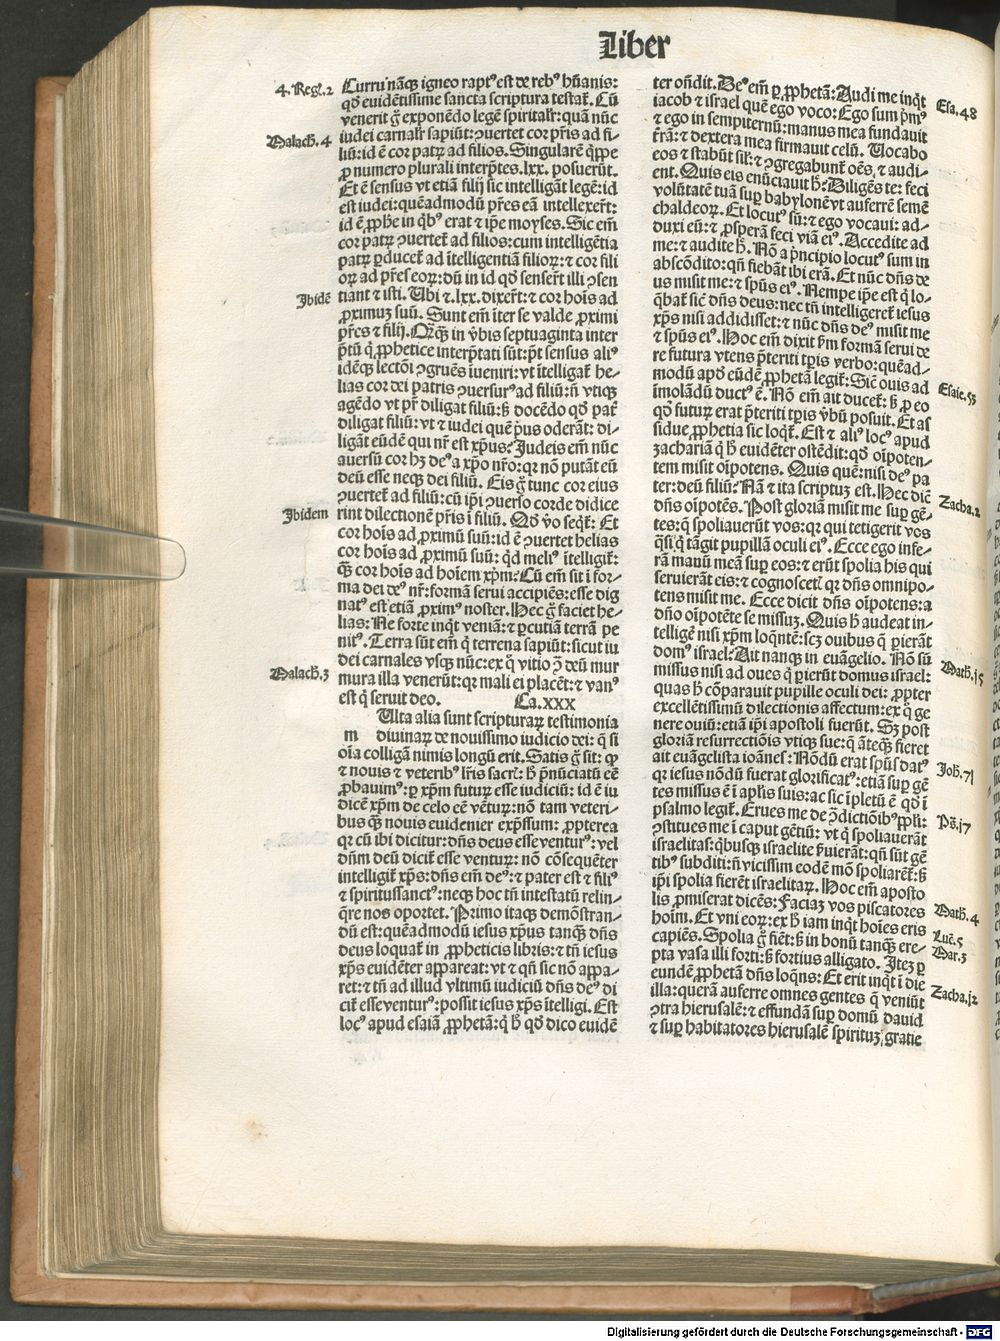 Liber
4. Regl. 2
Curru nãqꝫ igneo raptꝰ est de rebꝰ hũanis:
qd̃ euidẽtissime sancta scriptura testat᷒. Cũ
venerit g̃ exponẽdo legẽ spiritalr̃: quã nũc
Malach. 4
iudei carnalr̃ sapiũt: ꝯuertet cor pr̃is ad fi⸗
liũ: id ẽ cor patꝝ ad filios. Singularẽ q̃ppe
ꝓ numero plurali interp̃tes. lxx. posuerũt.
Et ẽ sensus vt etiã filij sic intelligãt legẽ: id
est iudei: quẽadmodũ pr̃es eã intellexer̃t:
id ẽ ꝓph̃e in q̃bꝰ erat ⁊ ip̃e moyses. Sic em̃
cor patꝝ ꝯuertet᷒ ad filios: cum intelligẽtia
patꝝ ꝑducet᷒ ad ĩtelligentiã filioꝝ: ⁊ cor fili
oꝝ ad pr̃es eoꝝ: dũ in id qd̃ senser̃t illi ꝯsen
Ibidẽ
tiant ⁊ isti. Ubi ⁊. lxx. dixer̃t: ⁊ cor hoĩs ad
ꝓximuꝫ suũ. Sunt em̃ ĩter se valde ꝓximi
pr̃es ⁊ filij. Qꝙꝫ in v̾bis septuaginta inter
p̃tũ q̃ ꝓphetice interp̃tati sũt: p̃t sensus aliꝰ
idẽqꝫ lectõi ꝯgruẽs ĩueniri: vt ĩtelligat᷒ he⸗
lias cor dei patris ꝯuersurꝰ ad filiũ: ñ vtiqꝫ
agẽdo vt pr̃ diligat filiũ: s̃ docẽdo qd̃ pat᷒
diligat filiũ: vt ⁊ iudei quẽ p̃us oderãt: di⸗
ligãt eũdẽ qui nr̃ est xp̃us. Judeis em̃ nũc
auersũ cor hꝫ deꝰ a xp̃o nr̃o: qꝛ nõ putãt eũ
deũ esse neqꝫ dei filiũ. Eis g̃ tunc cor eius
ꝯuertet᷒ ad filiũ: cũ ip̃i ꝯuerso corde didice
Ibidem
rint dilectionẽ pr̃is ĩ filiũ. Qd̃ v̾o seqt᷒: Et
cor hoĩs ad ꝓximũ suũ: id ẽ ꝯuertet helias
cor hoĩs ad ꝓximũ suũ: qd̃ meliꝰ ĩtelligit᷒:
ꝙꝫ cor hoĩs ad hoĩem xp̃m: Cũ em̃ sit ĩ for⸗
ma dei deꝰ nr̃: formã serui accipiẽs: esse dig
natꝰ est etiã ꝓximꝰ noster. Hec g̃ faciet he⸗
lias: Ne forte inqt veniã: ⁊ ꝑcutiã terrã pe
nitꝰ. Terra sũt em̃ q̃ terrena sapiũt: sicut iu
dei carnales vsqꝫ nũc: ex q̃ vitio ꝯ̃ deũ mur
Malach. 3
mura illa venerũt: qꝛ mali ei placẽt: ⁊ vanꝰ
est q̃ seruit deo. Ca. XXX
m Ulta alia sunt scripturaꝝ testimonia
diuinaꝝ de nouissimo iudicio dei: q̃ si
oĩa colligã nimis longũ erit. Satis g̃ sit: ꝙ
⁊ nouis ⁊ veteribꝰ lr̃is sacr̃: h̃ p̃nũciatũ eẽ
ꝓbauimꝰ: ꝑ xp̃m futuꝝ esse iudiciũ: id ẽ iu
dicẽ xp̃m de celo eẽ vẽtuꝝ: nõ tam veteri⸗
bus ꝙꝫ nouis euidenier exp̃ssum: ꝓpterea
qꝛ cũ ibi dicitur: dñs deus esse venturꝰ: vel
dñm deũ dicit᷒ esse ventuꝝ: nõ cõsequẽter
intelligit᷒ xp̃s: dñs em̃ deꝰ: ⁊ pater est ⁊ filiꝰ
⁊ spiritussanctꝰ: neqꝫ hoc tñ intestatũ relin⸗
q̃re nos oportet. Primo itaqꝫ demõstran⸗
dũ est: quẽadmodũ iesus xp̃us tanqꝫ dñs
deus loquat᷒ in ꝓpheticis libris: ⁊ tñ iesus
xp̃s euidẽter appareat: vt ⁊ qñ sic nõ appa⸗
ret: ⁊ tñ ad illud vltimũ iudiciũ dñs deꝰ di
cit᷒ esse venturꝰ: possit iesus xp̃s ĩtelligi. Est
locꝰ apud esaiã ꝓphetã: q̃ h̃ qd̃ dico euidẽ
ter oñdit. Deꝰ em̃ ꝑ ꝓphetã: Audi me inqt
Esa. 48
iacob ⁊ israel quẽ ego voco: Ego sum p̃mꝰ
⁊ ego in sempiternũ: manus mea fundauit
t̾rã: ⁊ dextera mea firmauit celũ. Uocabo
eos ⁊ stabũt sil̃: ⁊ ꝯgregabunt᷒ oẽs, ⁊ audi⸗
ent. Quis eis enũciauit h̃: Diligẽs te: feci
volũtatẽ tuã suꝑ babylonẽ vt auferrẽ semẽ
chaldeoꝝ. Et locutꝰ sũ: ⁊ ego vocaui: ad⸗
duxi eũ: ⁊ ꝓsperã feci viã eiꝰ. Accedite ad
me: ⁊ audite h̃. Nõ a p̃ncipio locutꝰ sum in
abscõdito: qñ fiebãt ibi erã. Et nũc dñs de
us misit me: ⁊ spũs eiꝰ. Nempe ip̃e est q̃ lo⸗
q̃bat᷒ sic̃ dñs deus: nec tñ intelligeret᷒ iesus
xp̃s nisi addidisset: ⁊ nũc dñs deꝰ misit me
⁊ spũs eiꝰ. Hoc em̃ dixit ẜm formã serui de
re futura vtens p̃teriti tp̃is verbo: quẽad⸗
modũ apd̃ eũdẽ ꝓphetã legit᷒: Sic̃ ouis ad
Esaie. 53
ĩmolãdũ ductꝰ ẽ. Nõ em̃ ait ducet᷒: s̃ ꝓ eo
qd̃ futuꝝ erat p̃teriti tp̃is v̾bũ posuit. Et as
sidue ꝓphetia sic loqt᷒. Est ⁊ aliꝰ locꝰ apud
zachariã q̃ h̃ euidẽter ostẽdit: qd̃ oĩpoten⸗
tem misit oĩpotens. Quis quẽ: nisi deꝰ pa
ter: deũ filiũ: Nã ⁊ ita scriptuꝫ est. Hec dic̃
Zacha. 2
dñs oĩpotẽs. Post gloriã misit me suꝑ gẽ⸗
tes: q̃ spoliauerũt vos: qꝛ qui tetigerit vos
q̃si q̃ tãgit pupillã oculi eiꝰ. Ecce ego infe⸗
rã manũ meã suꝑ eos: ⁊ erũt spolia his qui
seruierãt eis: ⁊ cognoscetꝭ qꝛ dñs omnipo⸗
tens misit me. Ecce dicit dñs oĩpotens: a
dño oĩpotẽte se missuꝫ. Quis h̃ audeat in⸗
telligẽ nisi xp̃m loqntẽ: scꝫ ouibus q̃ pierãt
domꝰ israel: Ait nanqꝫ in euãgelio. Nõ sũ
Math. j5
missus nisi ad oues q̃ pierũt domus israel:
quas h̃ cõparauit pupille oculi dei: ꝓpter
excellẽtissimũ dilectionis affectum: ex q̃ ge
nere ouiũ: etiã ip̃i apostoli fuerũt. Sꝫ post
gloriã resurrectiõis vtiqꝫ sue: q̃ ãteqꝫ fieret
ait euãgelista ioãnes: Nõdũ erat spũs datꝰ
Joh. 7
qꝛ iesus nõdũ fuerat glorificatꝰ: etiã suꝑ gẽ
tes missus ẽ ĩ aplĩs suis: ac sic ĩpletũ ẽ qd̃ ĩ
psalmo legit᷒. Erues me de ꝯ̃dictiõibꝰ ppl̃i:
Ps̃. j7
ꝯstitues me ĩ caput gẽtiũ: vt q̃ spoliauerãt
israelitas: q̃busqꝫ israelite s̾uierãt: qñ sũt gẽ
tibꝰ subditi: ñ vicissim eodẽ mõ spoliarẽt᷒: s̃
ip̃i spolia fierẽt israelitaꝝ. Hoc em̃ aposto
lis ꝓmiserat dicẽs: Faciaꝫ vos piscatores
Math. 4
hoĩm. Et vni eoꝝ: ex h̃ iam inqt hoĩes eris
Luẽ. 5
capiẽs. Spolia g̃ fiẽt: s̃ in bonũ tanqꝫ ere⸗
Mar. 3
pta vasa illi forti: s̃ fortius alligato. Iteꝫ ꝑ
eundẽ ꝓphetã dñs loqns: Et erit inqt ĩ die
Zacha. j2
illa: querã auferre omnes gentes q̃ veniũt
ꝯtra hierusalẽ: ⁊ effundã suꝑ domũ dauid
⁊ suꝑ habitatores hierusalẽ spirituꝫ gratie
Digitalisierung gefördert durch die Deutsche Forschungsgemeinschaft - DFG